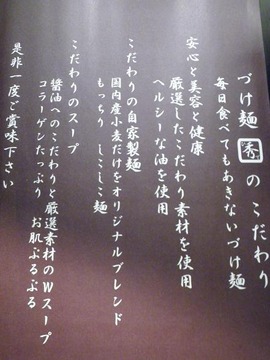 づけ麺 秀 のこだわり
毎日食べてもあきないづけ麺
安心と美容と健康
厳選したこだわり素材を使用
ヘルシーな油を使用
こだわりの自家製麺
国内産小麦だけをオリジナルブレンド
もっちり しこしこ麺
こだわりのスープ
醤油へのこだわりと厳選素材のWスープ
コラーゲンたっぷり
お肌ぷるぷる
是非一度ご賞味下さい